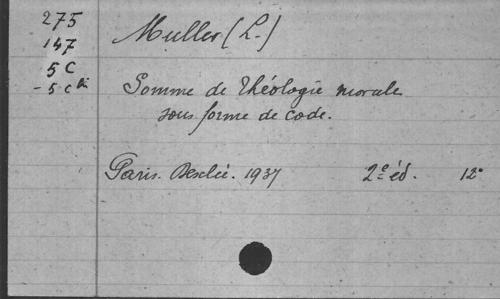 275
147
5 C
- 5 c bis
Muller (L.)
Somme de théologie morale
sous forme de code.
Paris. Desclée. 1937 2e éd. 12°